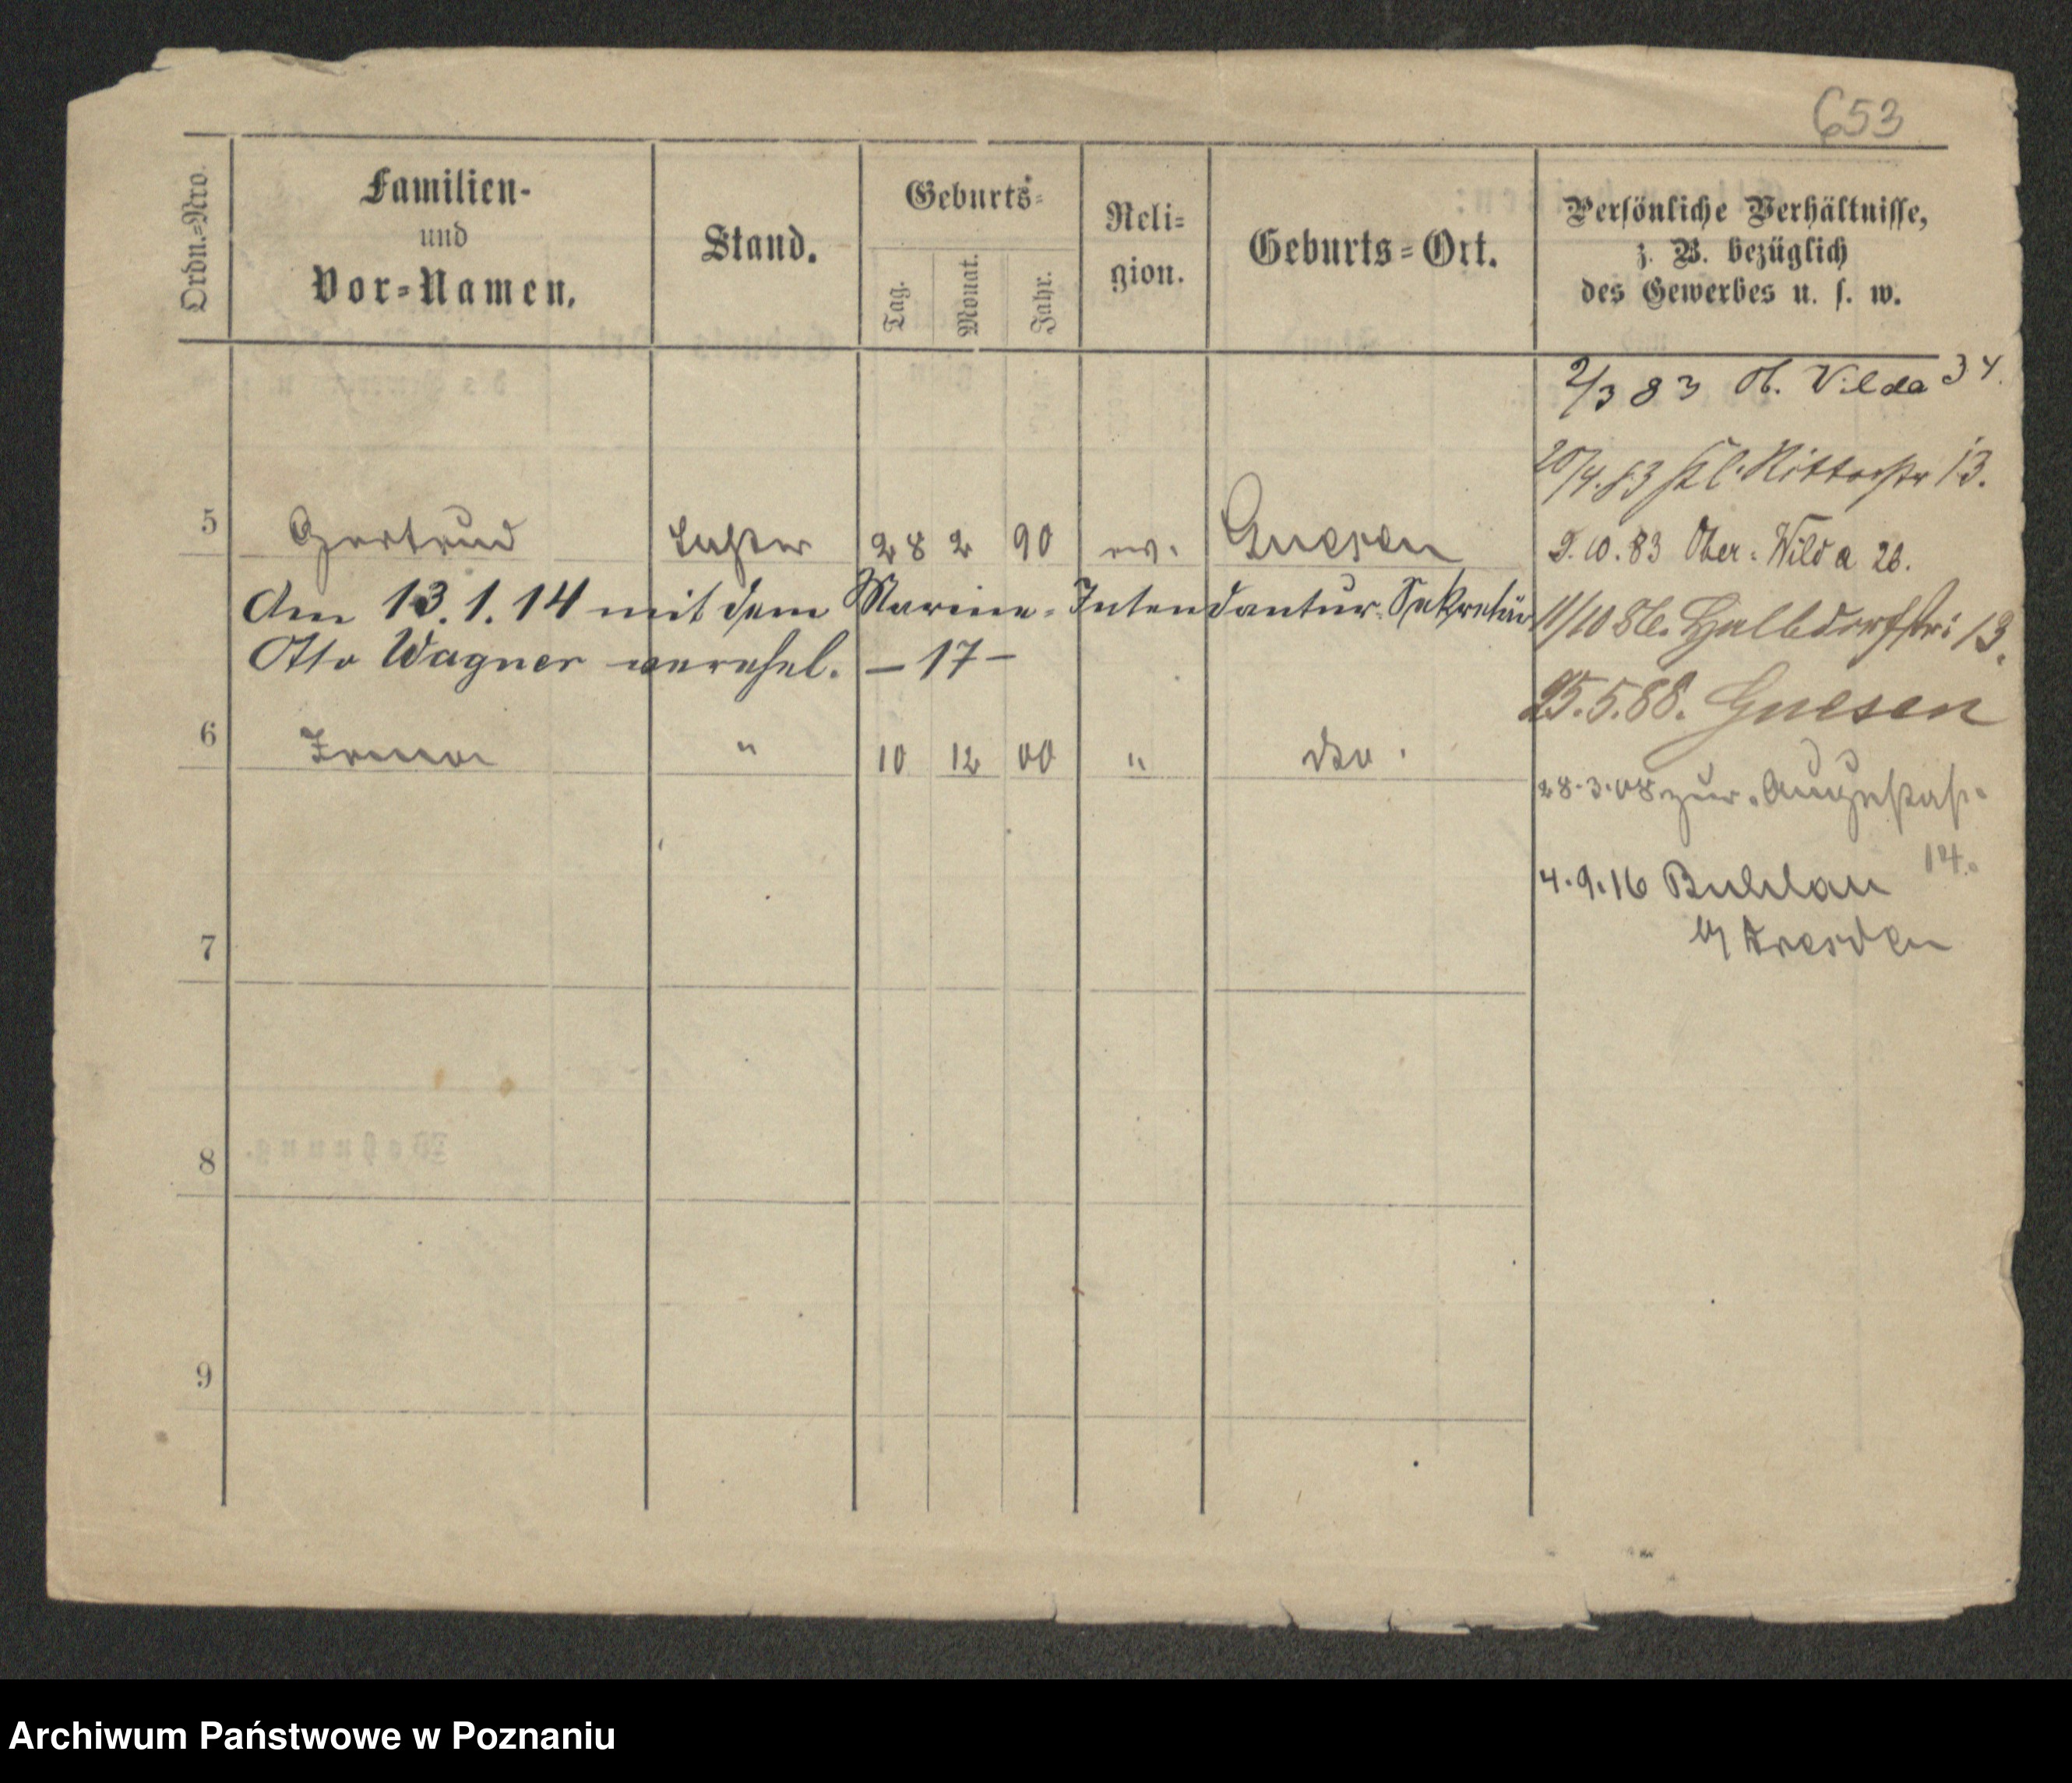 653
Ordn.-Nro.
Familien-
und
Vor-Namen.
Stand.
Geburts-
Tag.
Monat.
Jahr.
Reli-
gion.
Geburts-Ort.
Persönliche Verhältnisse,
z. B. bezüglich
des Gewerbes u. s. w.
2/3 83 Ob. Vilda 34.
20/4.83 Kl. Ritterstr 13.
5 Gertrud Tochter 28 2 90 ev. Gnesen
2.10.83 Ober-Wilda 26.
Am 13.1.14 mit dem Marine-Intendantur-Sekretär
Otto Wagner verehel. – 17 –
11/10 86. Halbdorfstr: 13.
25.5.88. Gnesen
6 Irma " 10 12 00 " dto.
28.3.08 zur. Augustastr.
14.
4.9.16 Buhlau
b/ Dresden
7
8
9
Archiwum Państwowe w Poznaniu